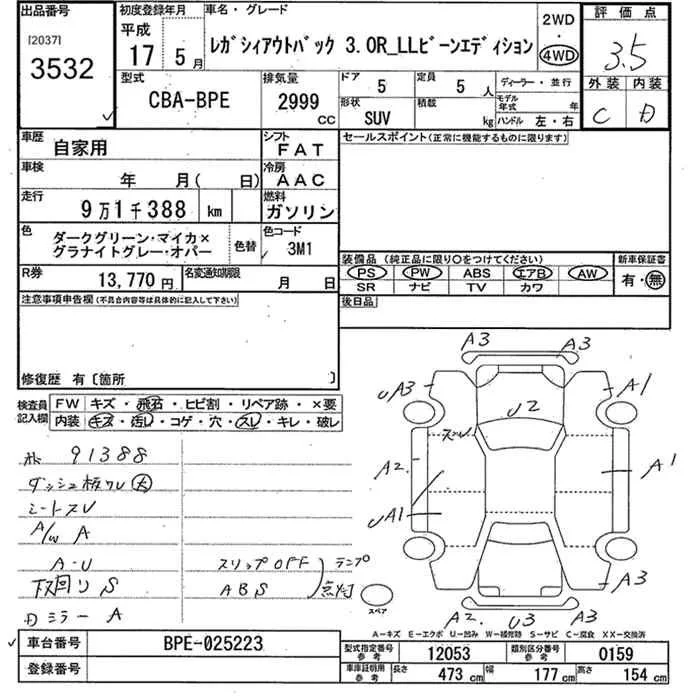 出品番号 初度登録年月 車名・グレード 2WD 評価点
[2037] 平成
3532 17 5月 レガシィアウトバック 3.0R_LLビーンエディション 4WD 3.5
型式 排気量 ドア 定員 ディーラー・並行 外装 内装
CBA-BPE 2999 CC 5 5人 モデル年式 年 C D
形状 SUV 積載 kg ハンドル 左・右
車歴 自家用 シフト FAT セールスポイント(正常に機能するものに限ります)
車検 年 月( 日) 冷房 AAC
走行 9万1千388 km 燃料 ガソリン
色 ダークグリーン・マイカ× 色替 色コード
グラナイトグレー・オパー 3M1
装備品(純正品に限り○をつけてください) 新車保証書
R券 13,770円 名変通知期限 月 日 PS PW ABS エアB AW 有・無
SR ナビ TV カワ
注意事項申告欄(不具合内容等は具体的に記入して下さい) 後日品
修復歴 有〔箇所 〕
検査員記入欄 FW キズ・飛石・ヒビ割・リペア跡・×要
内装 キズ・汚レ・コゲ・穴・スレ・キレ・破レ
A3 A3
UA3 A1
U2
スレ
A2 A1
UA1
A3
A2 U3 A3
91388
ダッシュ板ワレ 大
シートスレ
A/W A
A・U スリップOFF ランプ
下回リ S ABS 点灯
ミラー A
スペア
A-キズ E-エクボ U-凹み W-補修跡 S-サビ C-腐食 XX-交換済
車台番号 BPE-025223 型式指定番号 参考 12053 類別区分番号 参考 0159
登録番号 車庫証明用 参考 長さ 473cm 幅 177cm 高さ 154cm